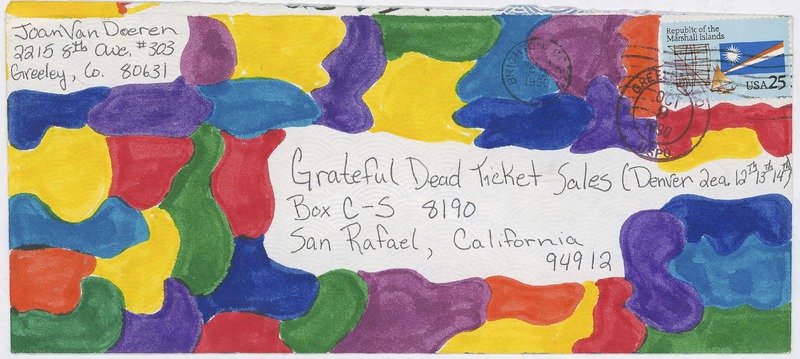 Joan Van Doeren
2215 8th Ave. #303
Greeley, Co. 80631
Republic of the
Marshall Islands
USA 25
OCT
1990
USPO
Grateful Dead Ticket Sales (Denver 2ea. 12th 13th 14th)
Box C-S 8190
San Rafael, California
94912